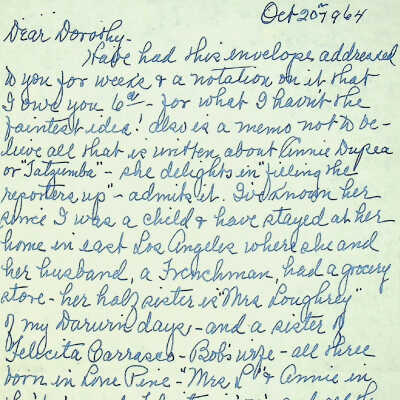 Oct 20th 1964
Dear Dorothy -
Have had this envelope addressed
to you for weeks & a notation on it that
I owe you 6¢ - for what I havn't the
faintest idea! Also is a memo not to be-
lieve all that is written about Annie Dupea
or "Tatzumba" - she delights in "filling the
reporters up" - admits it. I've known her
since I was a child & have stayed at her
home in east Los Angeles where she and
her husband, a Frenchman, had a grocery
store - her half sister is "Mrs Loughrey"
of my Darwin days, - and a sister of
Felicita Carrasco - Bob's wife - all three
born in Lone Pine - "Mrs L" & Annie in